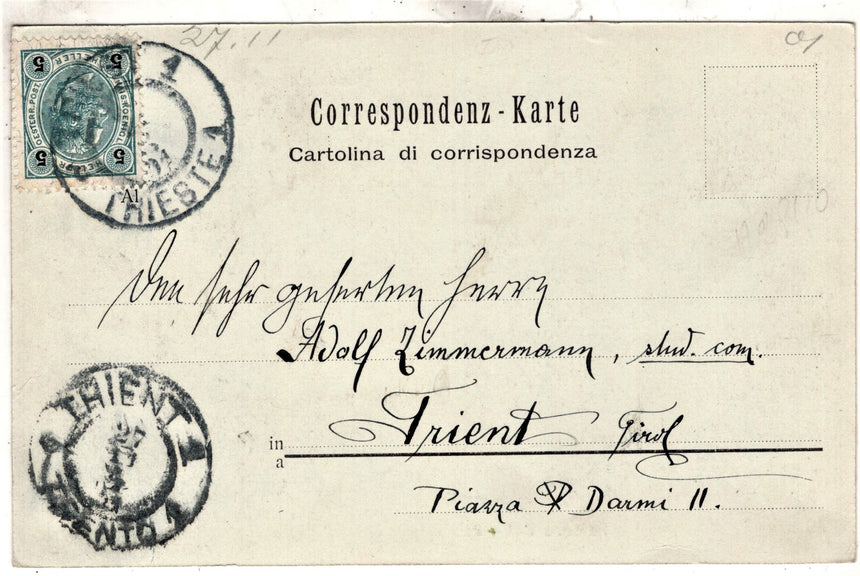 27.11
5 5
5 5
TRIESTE 1
1
Al
Correspondenz - Karte
Cartolina di corrispondenza
Den sehr geherten Herrn
Adolf Zimmermann, stud. com.
in Trient Tirol
a
Piazza Darmi 11.
TRIENT 1
TRENTO 1